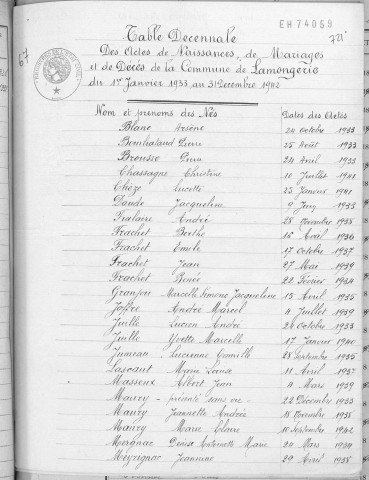 EH74059
721
67
Table Decennale
Des Actes de Naissances, de Mariages
et de Décès de la Commune de Lamongerie
du 1er Janvier 1933 au 31 Decembre 1942
Nom et prenoms des Nés Dates des Actes
Blanc Arsène 24 Octobre 1933
Bombataud Pierre 25 Août 1933
Brousse 24 Avril 1933
Chassagne Christine 10 Juillet 1941
Chèze Lucette 23 Janvier 1941
Donde Jacqueline 9 Juin 1933
Fralaire André 28 Novembre 1938
Frachet Berthe 16 Avril 1936
Frachet Emile 17 Octobre 1937
Frachet Jean 27 Mai 1939
Frachet René 22 Février 1934
Granger Marcelle Simone Jacqueline 15 Avril 1935
Joffre André Marcel 4 Juillet 1939
Juille Lucien André 26 Octobre 1933
Juille Yvette Marcelle 17 Janvier 1940
Juneau Lucienne Camille 28 Septembre 1935
Lascaut Marie Louise 11 Avril 1937
Massenx Albert Jean 4 Mars 1939
Maury - présenté sans vie - 22 Décembre 1933
Maury Jeannette Andrée 18 Novembre 1938
Maury Marie Claire 10 Septembre 1942
Margnac Denise Antoinette Marie 24 Mars 1934
Meyrignac Jeannine 29 Avril 1938